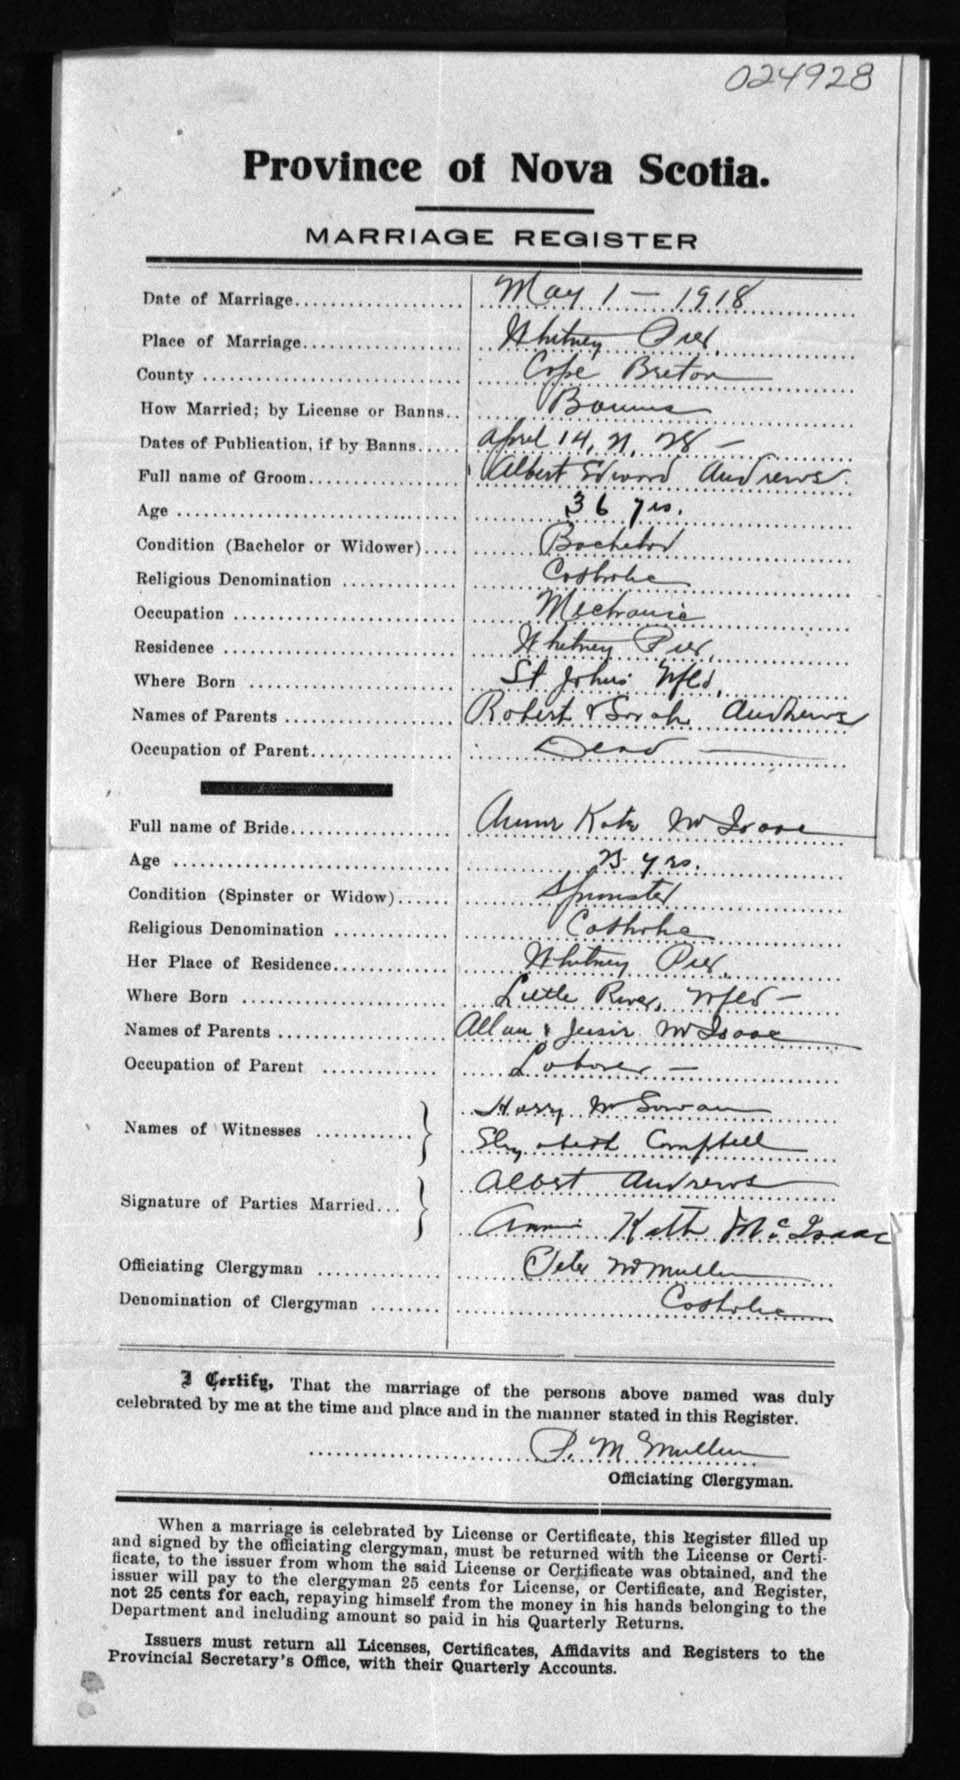 024928
Province of Nova Scotia.
MARRIAGE REGISTER
Date of Marriage................... May 1 — 1918
Place of Marriage................... Whitney Pier
County ............................ Cape Breton
How Married; by License or Banns.. Banns
Dates of Publication, if by Banns..... April 14, 21, 28 —
Full name of Groom................. Albert Edward Andrews
Age ............................... 36 yrs.
Condition (Bachelor or Widower).... Bachelor
Religious Denomination ............ Catholic
Occupation ........................ Mechanic
Residence ......................... Whitney Pier
Where Born ....................... St Johns Nfld,
Names of Parents ................... Robert & Sarah Andrews
Occupation of Parent................ Dead —
Full name of Bride................... Annie Kate McIsaac
Age .............................. yrs.
Condition (Spinster or Widow)...... Spinster
Religious Denomination ............. Catholic
Her Place of Residence.............. Whitney Pier.
Where Born ........................ Little River, Nfld —
Names of Parents .................... Allan & McIsaac
Occupation of Parent .............. Laborer —
Harry McGowan
Names of Witnesses ........... } Elizabeth Campbell
Albert Andrews
Signature of Parties Married... } Annie Kath McIsaac
Officiating Clergyman .............. Peter McMullen
Denomination of Clergyman ........ Catholic
I Certify, That the marriage of the persons above named was duly
celebrated by me at the time and place and in the manner stated in this Register.
P. McMullen
Officiating Clergyman.
When a marriage is celebrated by License or Certificate, this Register filled up
and signed by the officiating clergyman, must be returned with the License or Certi-
ficate, to the issuer from whom the said License or Certificate was obtained, and the
issuer will pay to the clergyman 25 cents for License, or Certificate, and Register,
not 25 cents for each, repaying himself from the money in his hands belonging to the
Department and including amount so paid in his Quarterly Returns.
Issuers must return all Licenses, Certificates, Affidavits and Registers to the
Provincial Secretary's Office, with their Quarterly Accounts.